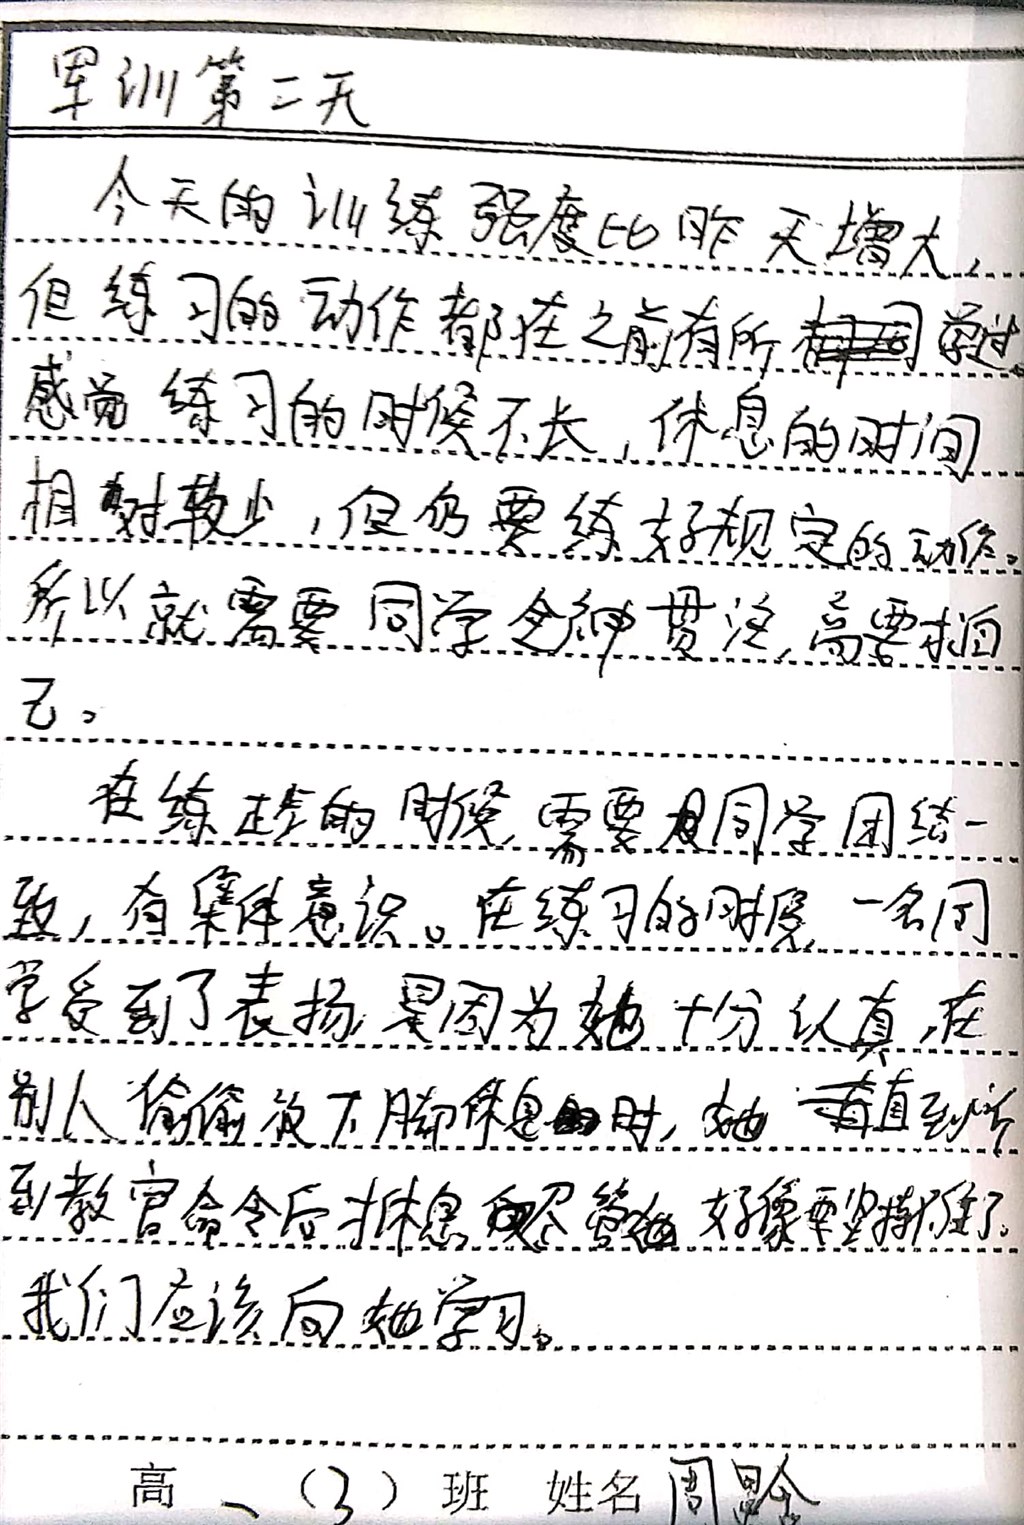 军训第二天
今天的训练强度比昨天增大,
但练习的动作都在之前有所学过。
感觉练习的时候不长,休息的时间
相对较少,但仍要练好规定的动作。
所以就需要同学全神贯注,高要求自
己。
在练走步的时候,需要同学团结一
致,有集体意识。在练习的时候,一名同
学受到了表扬,是因为她十分认真,在
别人偷偷放下脚休息时,她一直到听
到教官命令后才休息,尽管她好像要坚持不住了。
我们应该向她学习。
高一(3)班 姓名 周